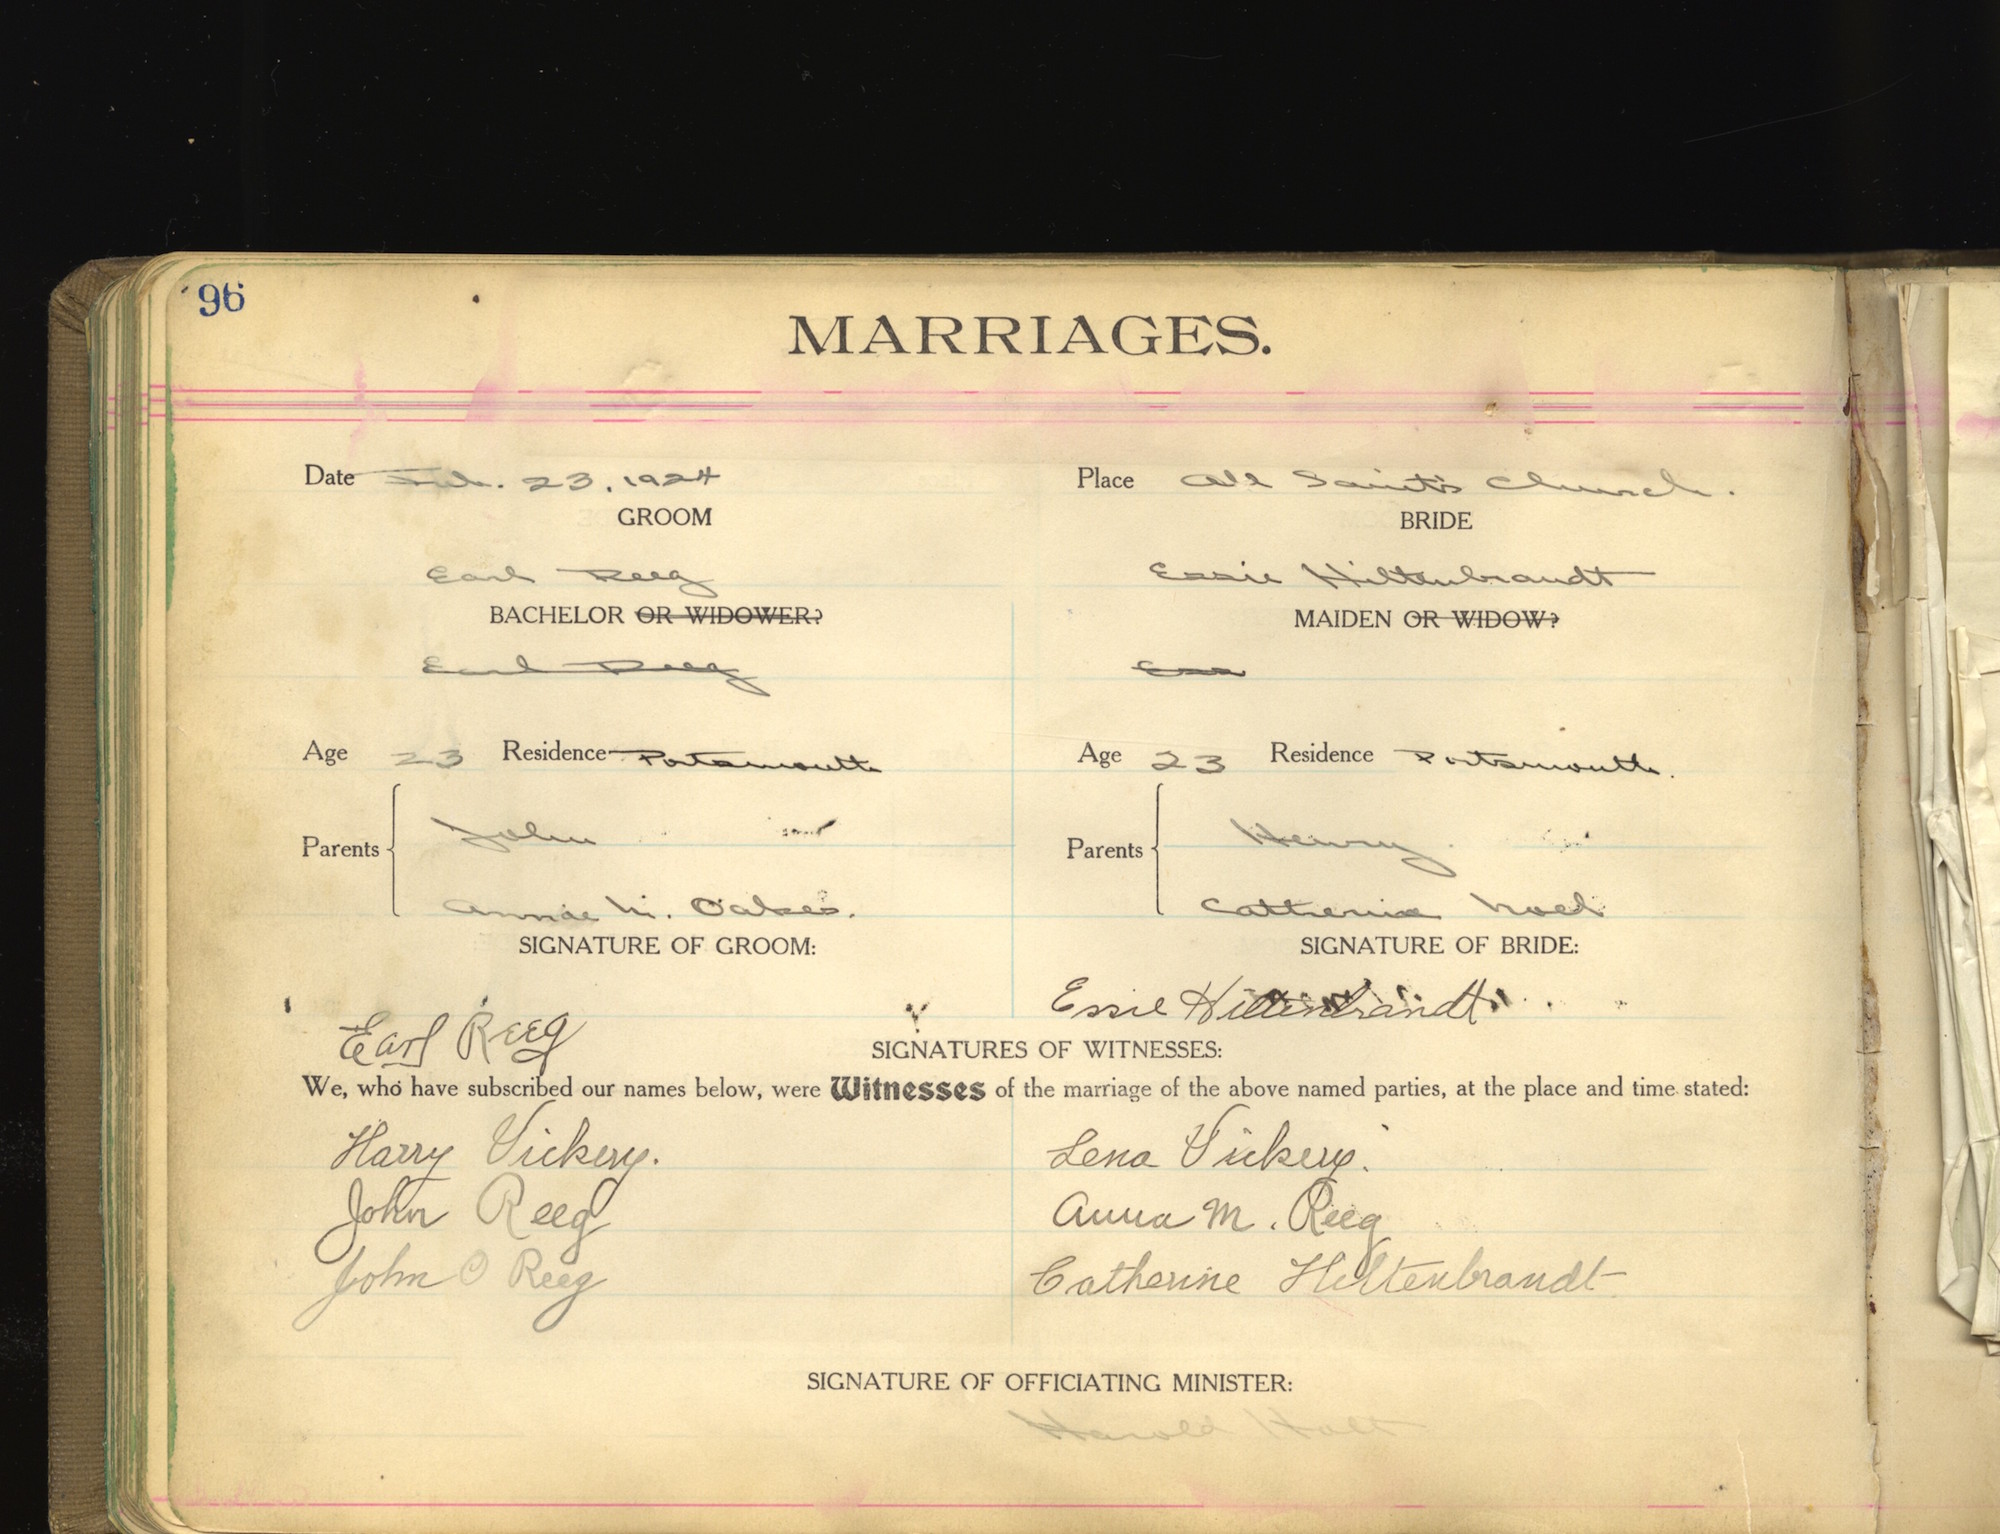 96
MARRIAGES.
Date Feb. 23, 1924 Place All Saint's Church.
GROOM BRIDE
Earl Reeg Essie Hiltenbrandt
BACHELOR OR WIDOWER? MAIDEN OR WIDOW?
Earl Reeg Ess
Age 23 Residence Portsmouth Age 23 Residence Portsmouth.
Parents John Parents Henry
Annae M. Oakes. Catherine Noel
SIGNATURE OF GROOM: SIGNATURE OF BRIDE:
Earl Reeg Essie Hiltenbrandt
SIGNATURES OF WITNESSES:
We, who have subscribed our names below, were Witnesses of the marriage of the above named parties, at the place and time stated:
Harry Vickery. Lena Vickery.
John Reeg Anna M. Reeg
John O Reeg Catherine Hiltenbrandt
SIGNATURE OF OFFICIATING MINISTER:
Harold Holt